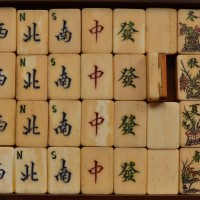 N S
西 北 南 中 發 冬
西 北 南 中 發 秋
N S
西 北 南 中 發 夏
N S
西 北 南 中 發 春